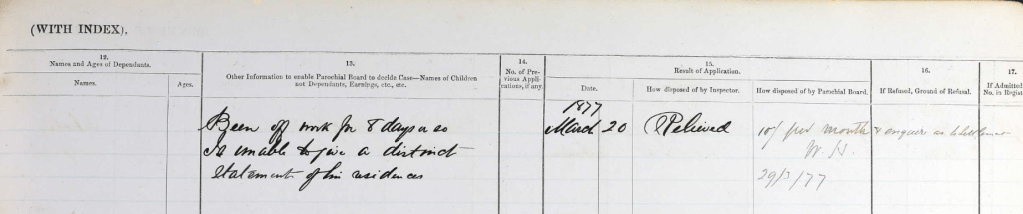 (WITH INDEX),
12.
Names and Ages of Dependants.
Names.
Ages.
13.
Other Information to enable Parochial Board to decide Case—Names of Children
not Dependants, Earnings, etc., etc.
14.
No. of Pre-
vious Appli-
cations, if any.
15.
Result of Application.
Date.
How disposed of by Inspector.
How disposed of by Parochial Board.
16.
If Refused, Ground of Refusal.
17.
If Admitted
No. in Regist
Been off work for 8 days or so
Is unable to give a distinct
Statement of his residences
1877
March 20
Relieved
10/ per month & enquire as to settlement
W. H.
29/3/77